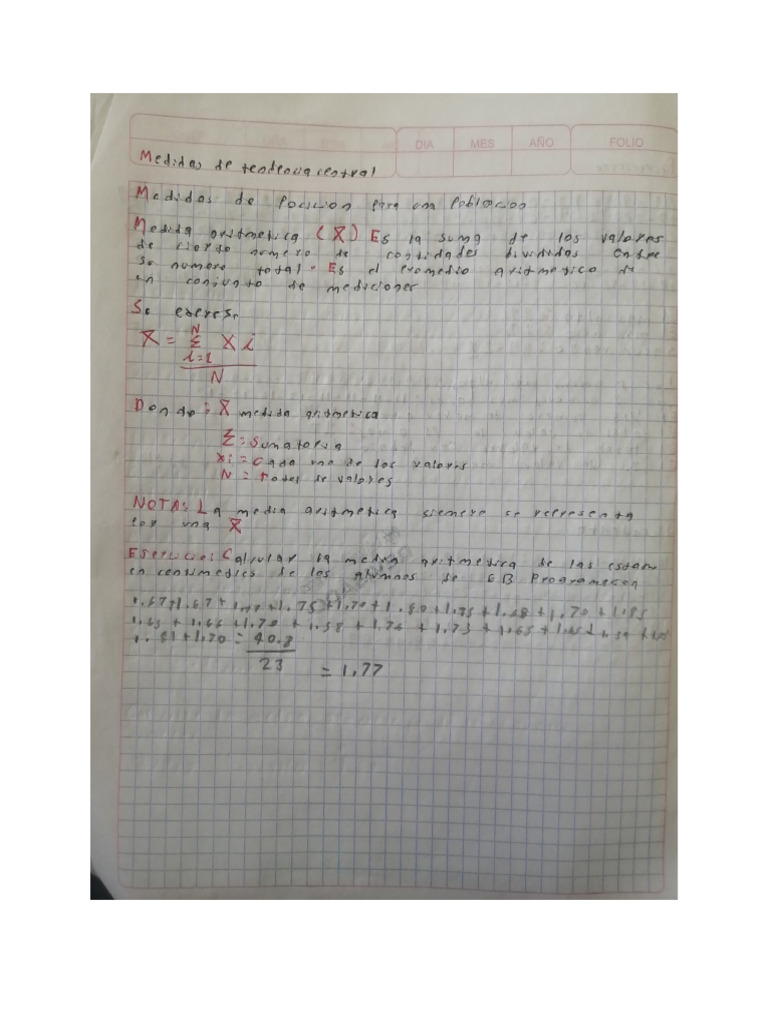 DIA MES AÑO FOLIO
Medidas de tendencia central
Medidas de Posicion para una Poblacion
Medida aritmetica (X̄) Es la suma de los valores
de cierto numero de cantidades divididas entre
su numero total. Es el promedio aritmetico de
un conjunto de mediciones
Se expresa
X̄ = Σ Xi
N
i=1
N
Donde: X̄ medida aritmetica
Σ = Sumatoria
Xi = Cada uno de los valores
N = Total de valores
NOTA: La media aritmetica siempre se representa
por una X̄
Calcular la media aritmetica de las
en de los alumnos de 6B Programacion
1.67+1.67+ +1.75+1.70+1.80+1.75+1.68+1.70+1.85
1.63+1.66+1.70+1.58+1.76+1.73+1.65+
1.81+1.70 = 40.8
23
= 1.77